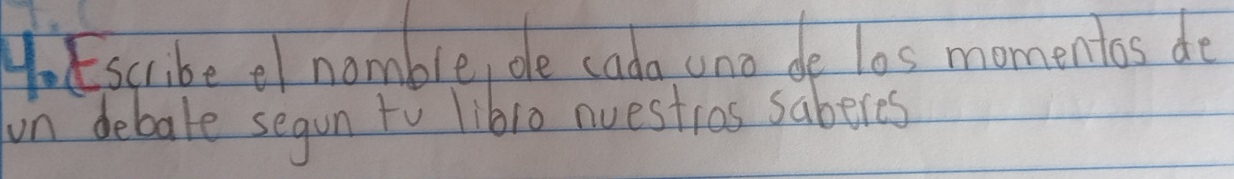 4. Escribe el nombre, de cada uno de los momentos de
un debate segun tu libro nuestros saberes